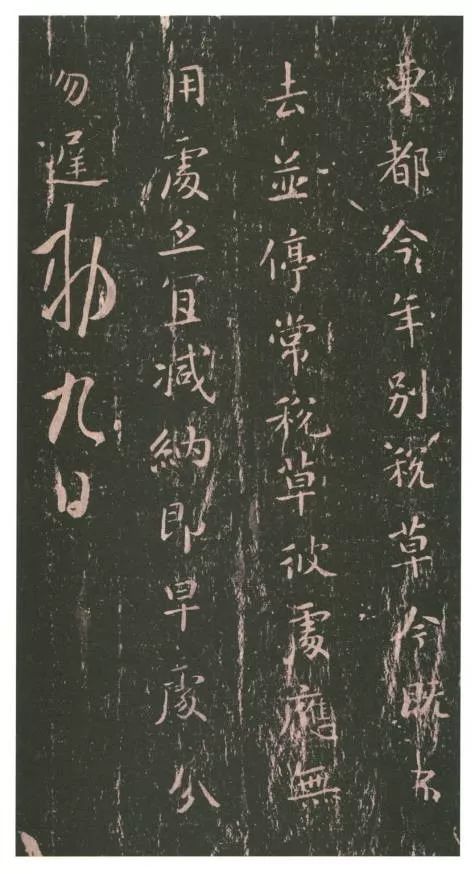 東都今年別税草今既不
去並停常税草彼處應無
用處亦宜減納即早處分
勿遲勅九日